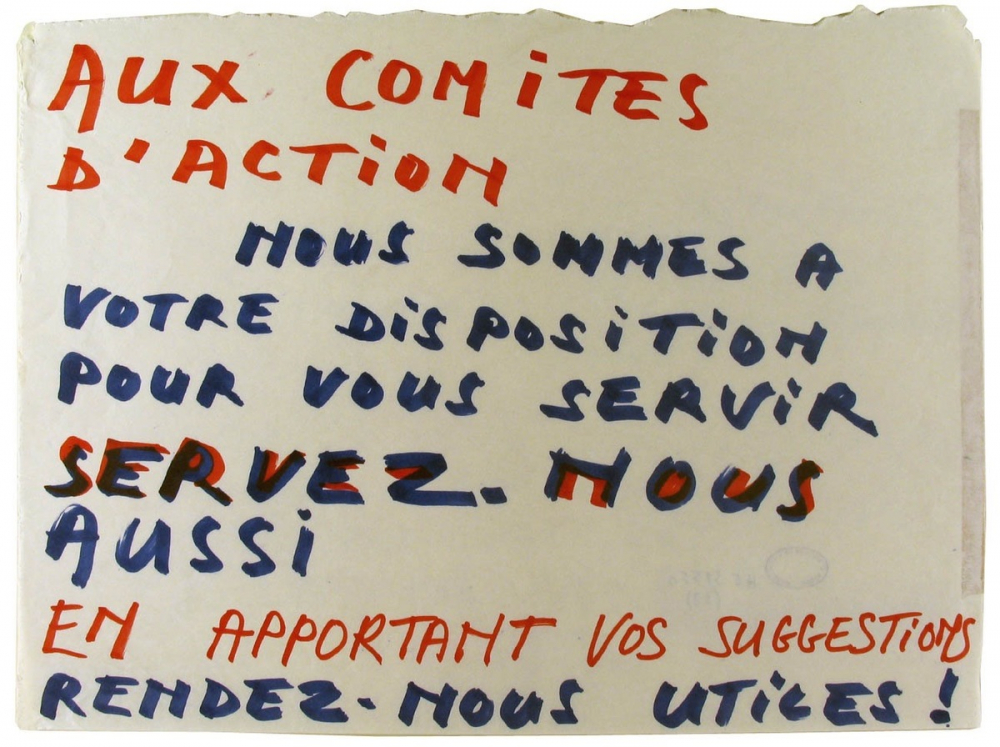 AUX COMiTES
D'ACTiON
NOUS SOMMES A
VOTRE DiSPOSiTiON
POUR VOUS SERViR
SERVEZ-NOUS
AUSSi
EN APPORTANT VOS SUGGESTiONS
RENDEZ-NOUS UTiLES!